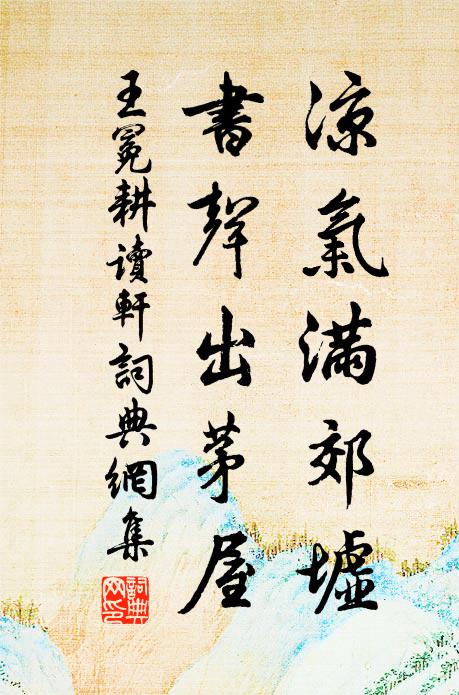 涼氣滿郊墟
書聲出茅屋
王冕耕讀軒詞典網集
詞典網印